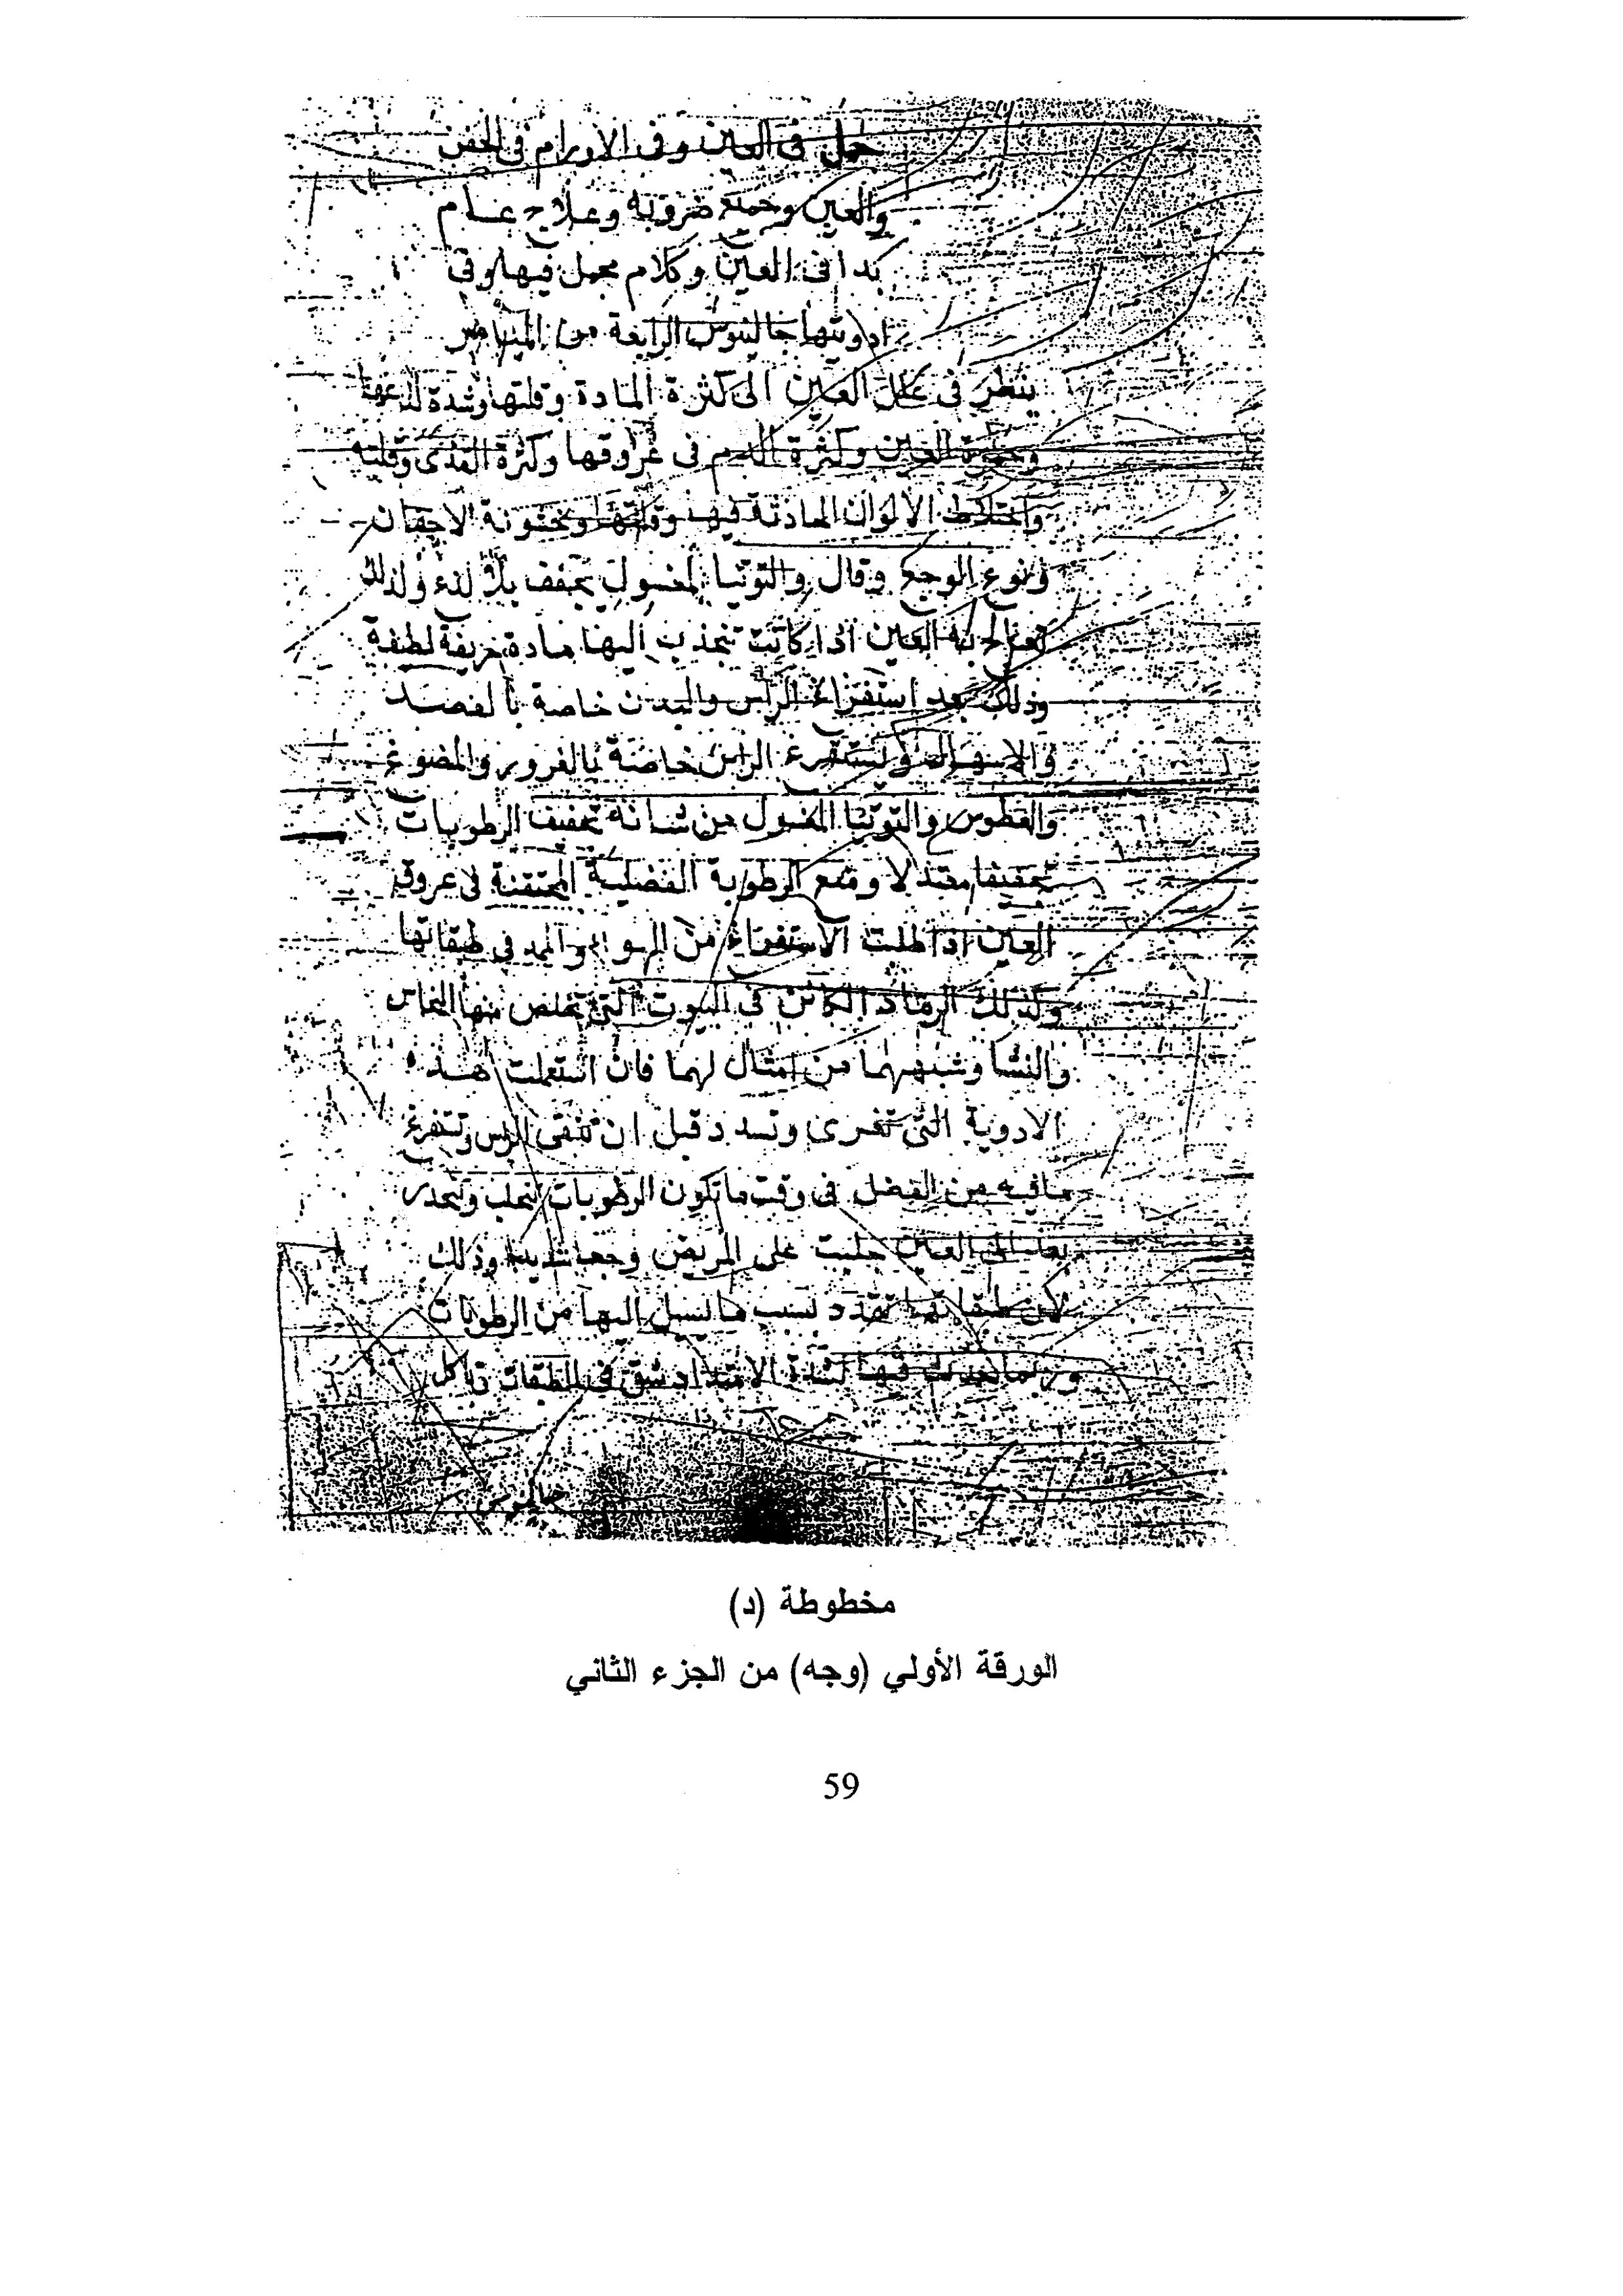 جمل فى العين وفى الاورام فى الجفن
والعين وجميع ضروبه وعلاج عام
فى العين وكلام مجمل فيها وفى
ادويتها جالينوس الرابعة من الميامر
ينظر فى علل العين الى كثرة المادة وقلتها وشدة لذعها
وحمرة العين وكثرة الدم فى عروقها وكثرة القذى وقلته
واختلاط الالوان الحادثة فيها وقلتها وخشونة الاجفان
ونوع الوجع وقال والتوتيا المغسول يجفف بلا لذع ولذلك
تعالج به العين اذا كانت تنجذب اليها مادة حريفة لطيفة
وذلك بعد استفراغ الراس والبدن خاصة بالفصد
والاسهال ويستفرغ الراس خاصة بالغرور والمضوغ
والعطوس والتوتيا المغسول من شانه تجفيف الرطوبات
تجفيفا معتدلا ومنع الرطوبة الفضلية المحتقنة فى عروق
العين اذا طلبت الاستفراغ من فى طبقاتها
وكذلك الرماد الكائن فى البيوت التى يخلص منها النحاس
والنشا وشبههما من امثال لهما فان استعملت هذه
الادوية التى تغرى وتسدد قبل ان تنقى الراس وتستفرغ
ما فيه من الفضل فى وقت ما تكون الرطوبات تتحلب وتنحدر
بعد الى العين جلبت على المريض وجعا شديدا وذلك
لان طبقاتها تمدد بسبب ما يسيل اليها من الرطوبات
وربما حدث فيها لشدة الامتداد شق فى الطبقات تاكل
جالينوس
مخطوطة (د)
الورقة الأولي (وجه) من الجزء الثاني
59